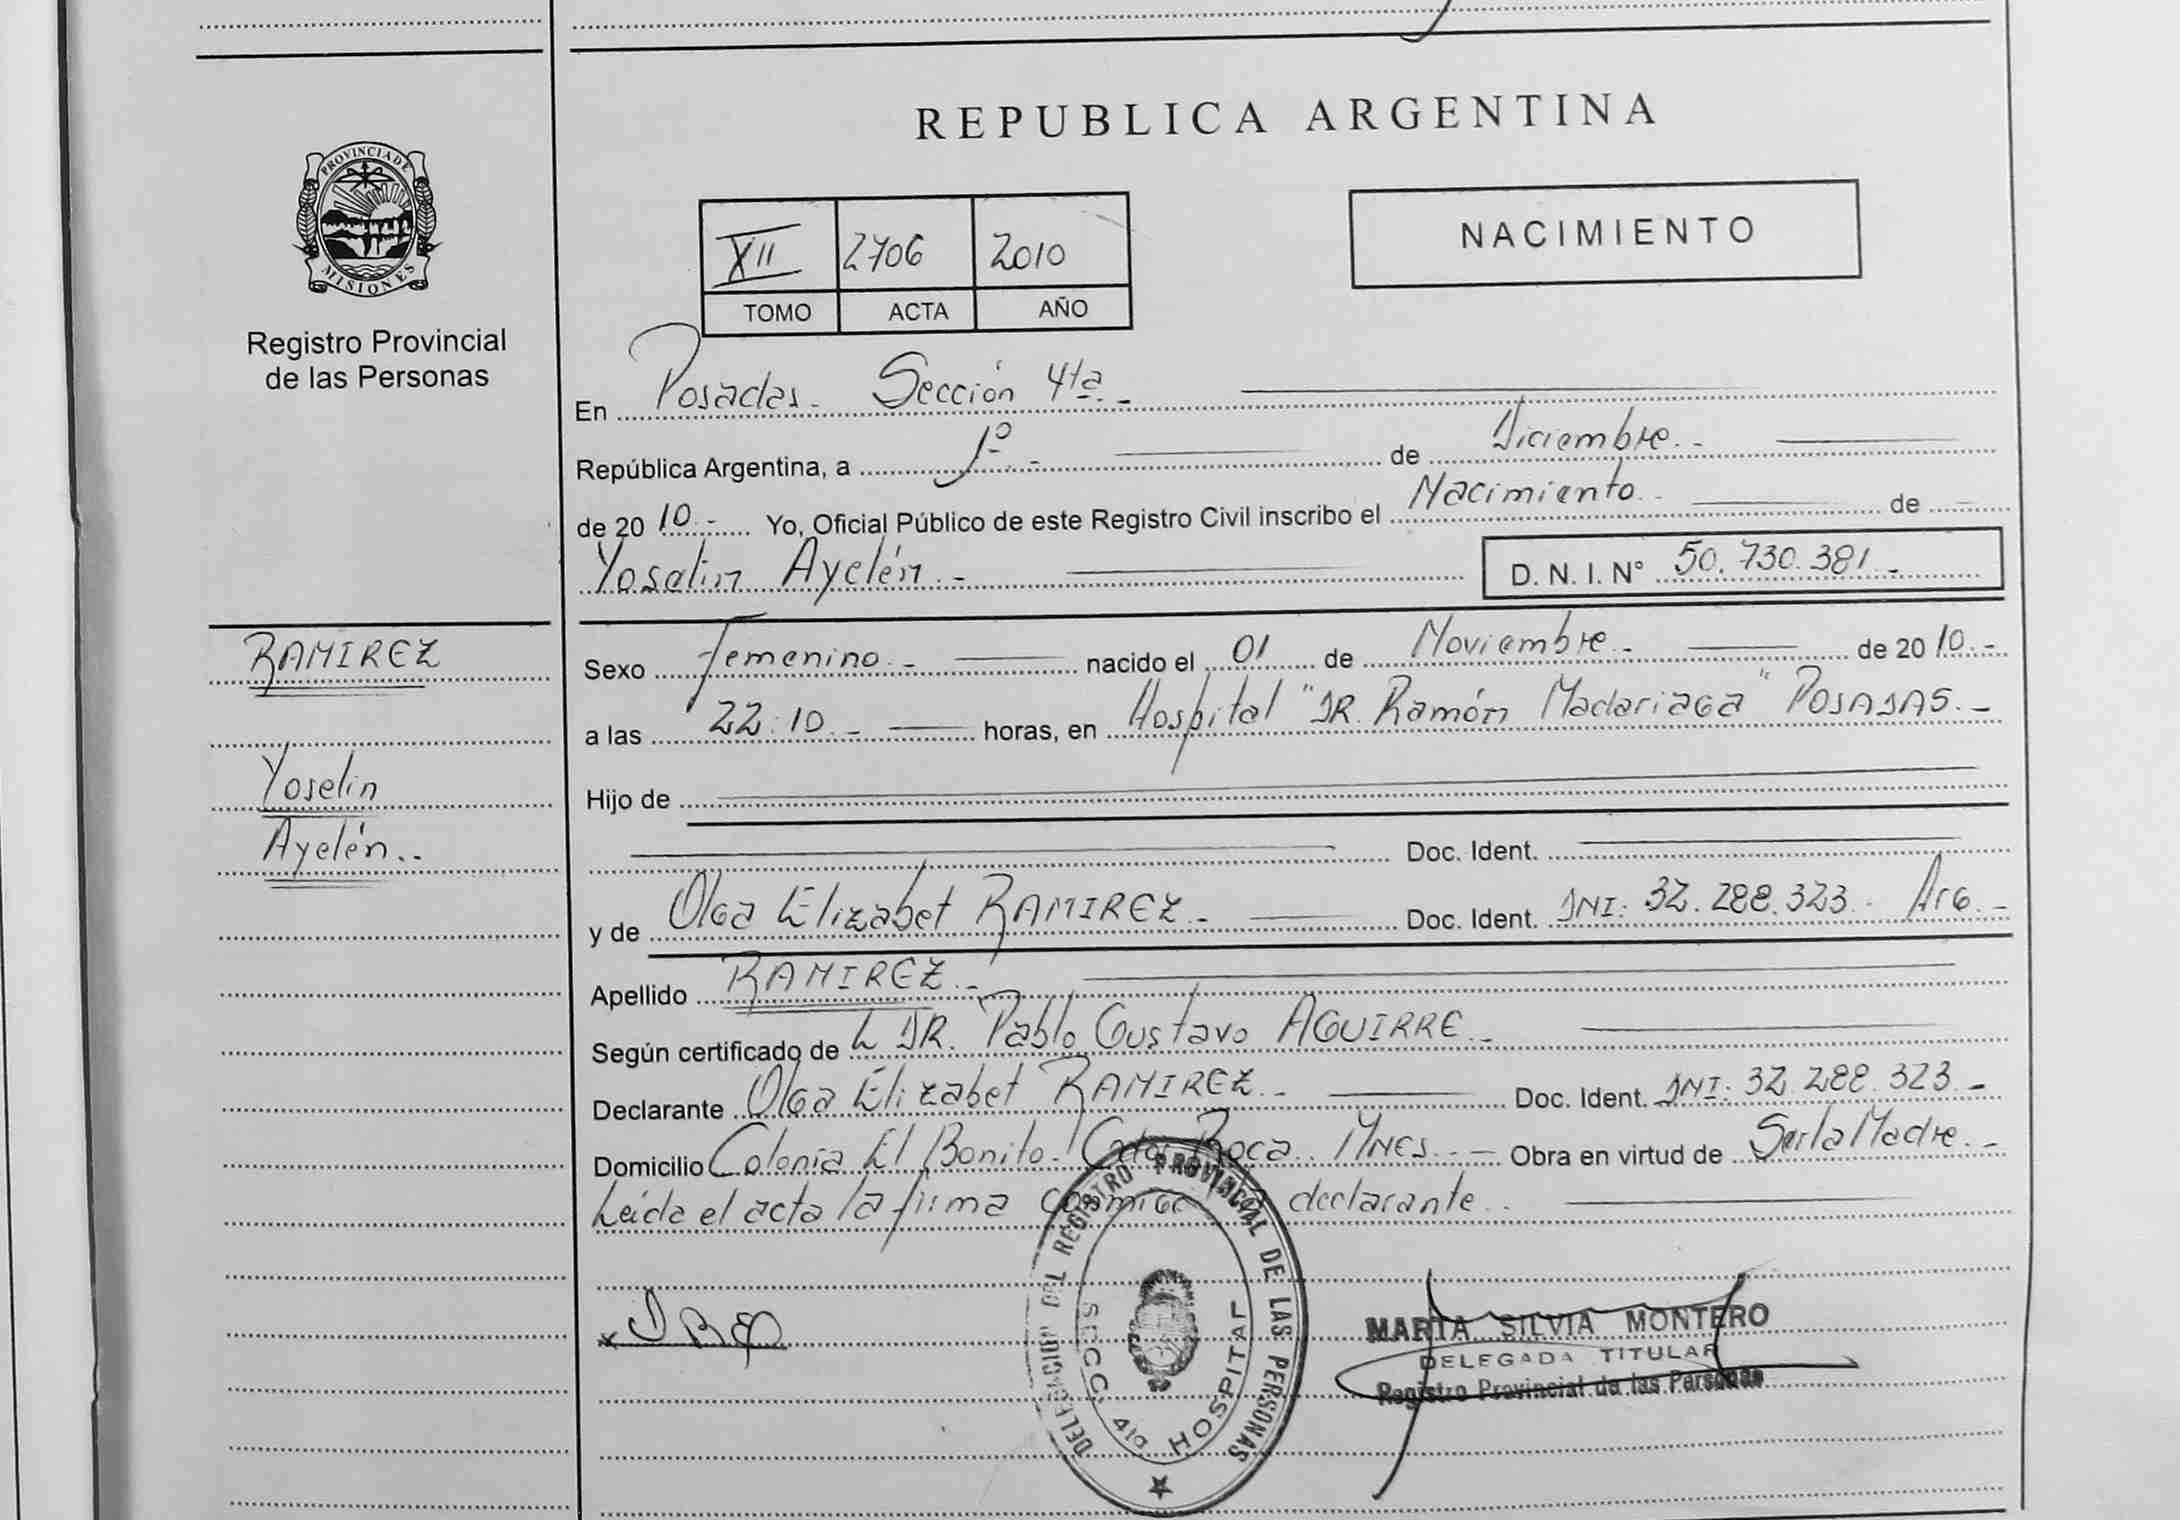 REPUBLICA ARGENTINA
PROVINCIA DE
MISIONES
Registro Provincial
de las Personas
XII 2706 2010
TOMO ACTA AÑO
NACIMIENTO
En Posadas. Sección 4ta.-
República Argentina, a 1º.- de Diciembre.-
de 2010.- Yo, Oficial Público de este Registro Civil inscribo el Nacimiento.- de
Yoselin Ayelén.- D. N. I. N° 50.730.381.-
RAMIREZ
Yoselin
Ayelén..
Sexo Femenino.- nacido el 01 de Noviembre.- de 2010.-
a las 22:10.- horas, en Hospital "DR. Ramón Madariaga" POSADAS.-
Hijo de
Doc. Ident.
y de Olga Elizabet RAMIREZ.- Doc. Ident. DNI: 32.288.323. Arg.-
Apellido RAMIREZ.-
Según certificado de L DR. Pablo Gustavo AGUIRRE.-
Declarante Olga Elizabet RAMIREZ.- Doc. Ident. DNI: 32.288.323.-
Domicilio Colonia El Bonito. Roca. MNES.- Obra en virtud de Ser la Madre.-
Leída el acta la firma conmigo declarante.-
DELEGACION DEL REGISTRO PROVINCIAL DE LAS PERSONAS
SECC. 4ta HOSPITAL
MARTA SILVIA MONTERO
DELEGADA TITULAR
Registro Provincial de las Personas